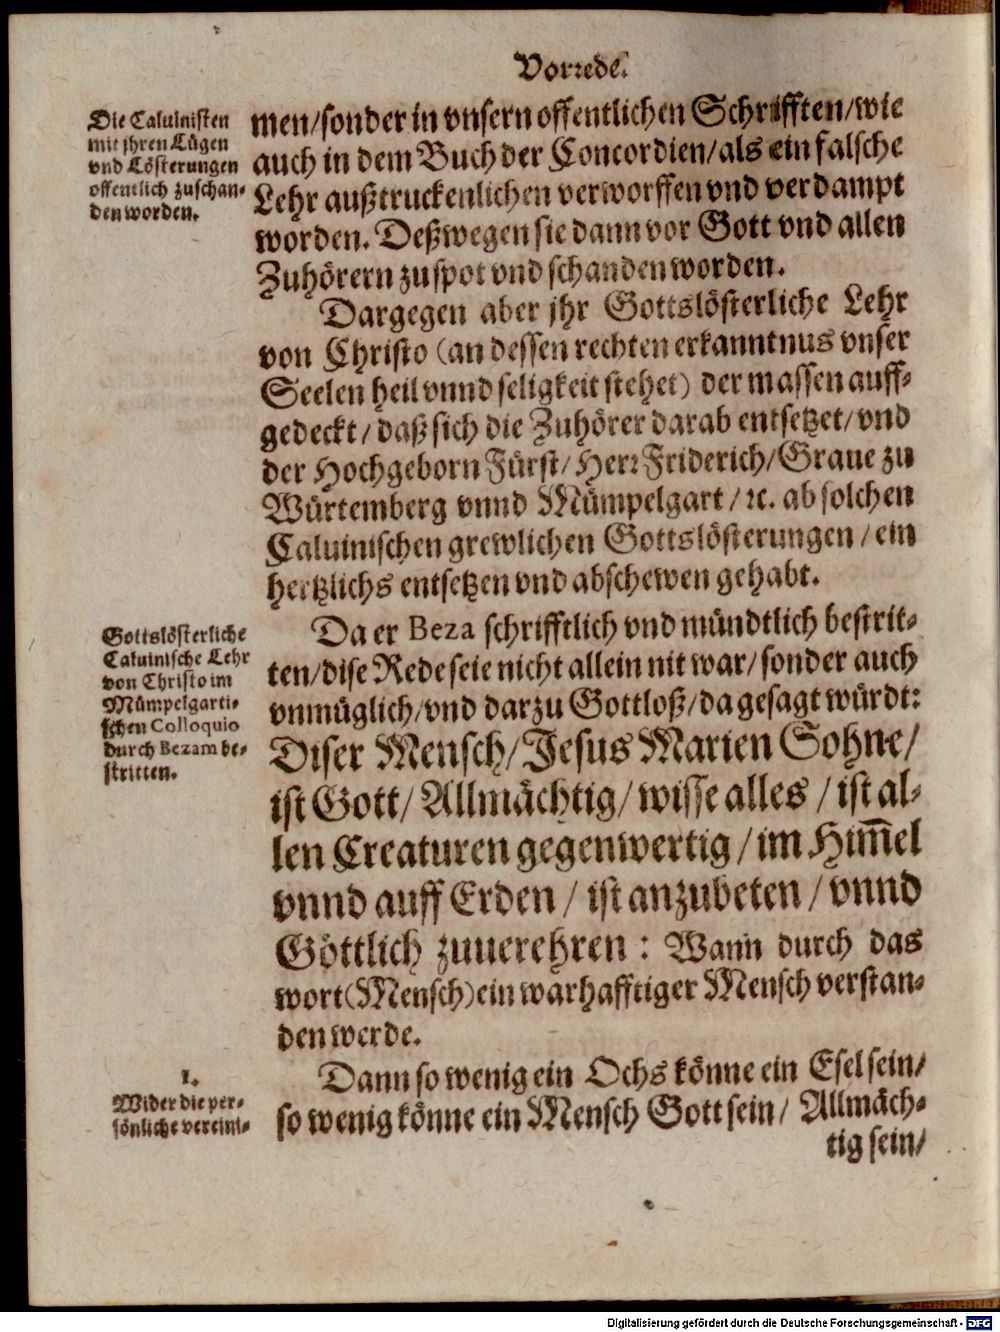 Vorrede.
Die Caluinisten
mit jhren Lügen
vnd Lösterungen
offentlich zuschan-
den worden.
men/sonder in vnsern offentlichen Schrifften/wie
auch in dem Buch der Concordien/als ein falsche
Lehr außtruckenlichen verworffen vnd verdampt
worden. Deßwegen sie dann vor Gott vnd allen
Zuhörern zuspot vnd schanden worden.
Dargegen aber jhr Gottslösterliche Lehr
von Christo (an dessen rechten erkanntnus vnser
Seelen heil vnnd seligkeit stehet) der massen auff-
gedeckt/daß sich die Zuhörer darab entsetzet/vnd
der Hochgeborn Fürst/Herr Friderich/Graue zu
Würtemberg vnnd Mümpelgart/ꝛc. ab solchen
Caluinischen grewlichen Gottslösterungen/ein
hertzlichs entsetzen vnd abschewen gehabt.
Gottslösterliche
Caluinische Lehr
von Christo im
Mümpelgarti-
schen Colloquio
durch Bezam be-
stritten.
Da er Beza schrifftlich vnd mündtlich bestrit-
ten/dise Rede seie nicht allein nit war/sonder auch
vnmüglich/vnd darzu Gottloß/da gesagt würdt:
Diser Mensch/Jesus Marien Sohne/
ist Gott/Allmächtig/wisse alles/ist al-
len Creaturen gegenwertig/im Him̃el
vnnd auff Erden/ist anzubeten/vnnd
Göttlich zuuerehren: Wann durch das
wort (Mensch) ein warhafftiger Mensch verstan-
den werde.
1.
Wider die per-
sönliche vereini-
Dann so wenig ein Ochs könne ein Esel sein/
so wenig könne ein Mensch Gott sein/Allmäch-
tig sein/
Digitalisierung gefördert durch die Deutsche Forschungsgemeinschaft - DFG